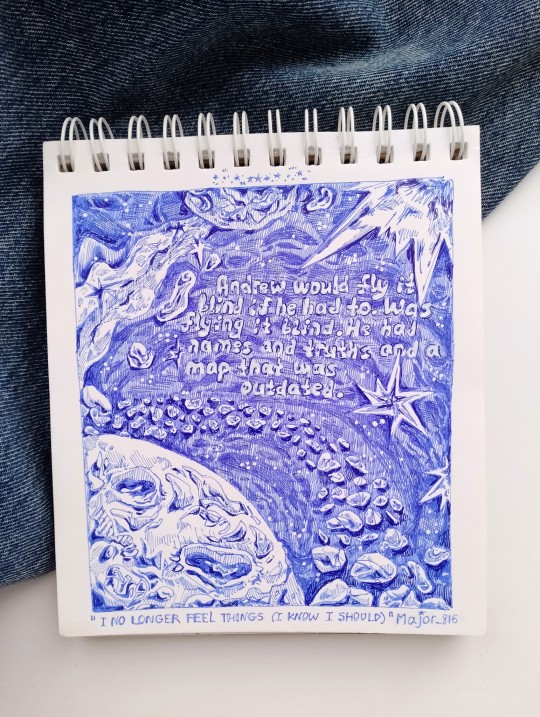 Andrew would fly it
blind if he had to. Was
flying it blind. He had
names and truths and a
map that was
outdated.
"I NO LONGER FEEL THINGS (I KNOW I SHOULD)" Major_815